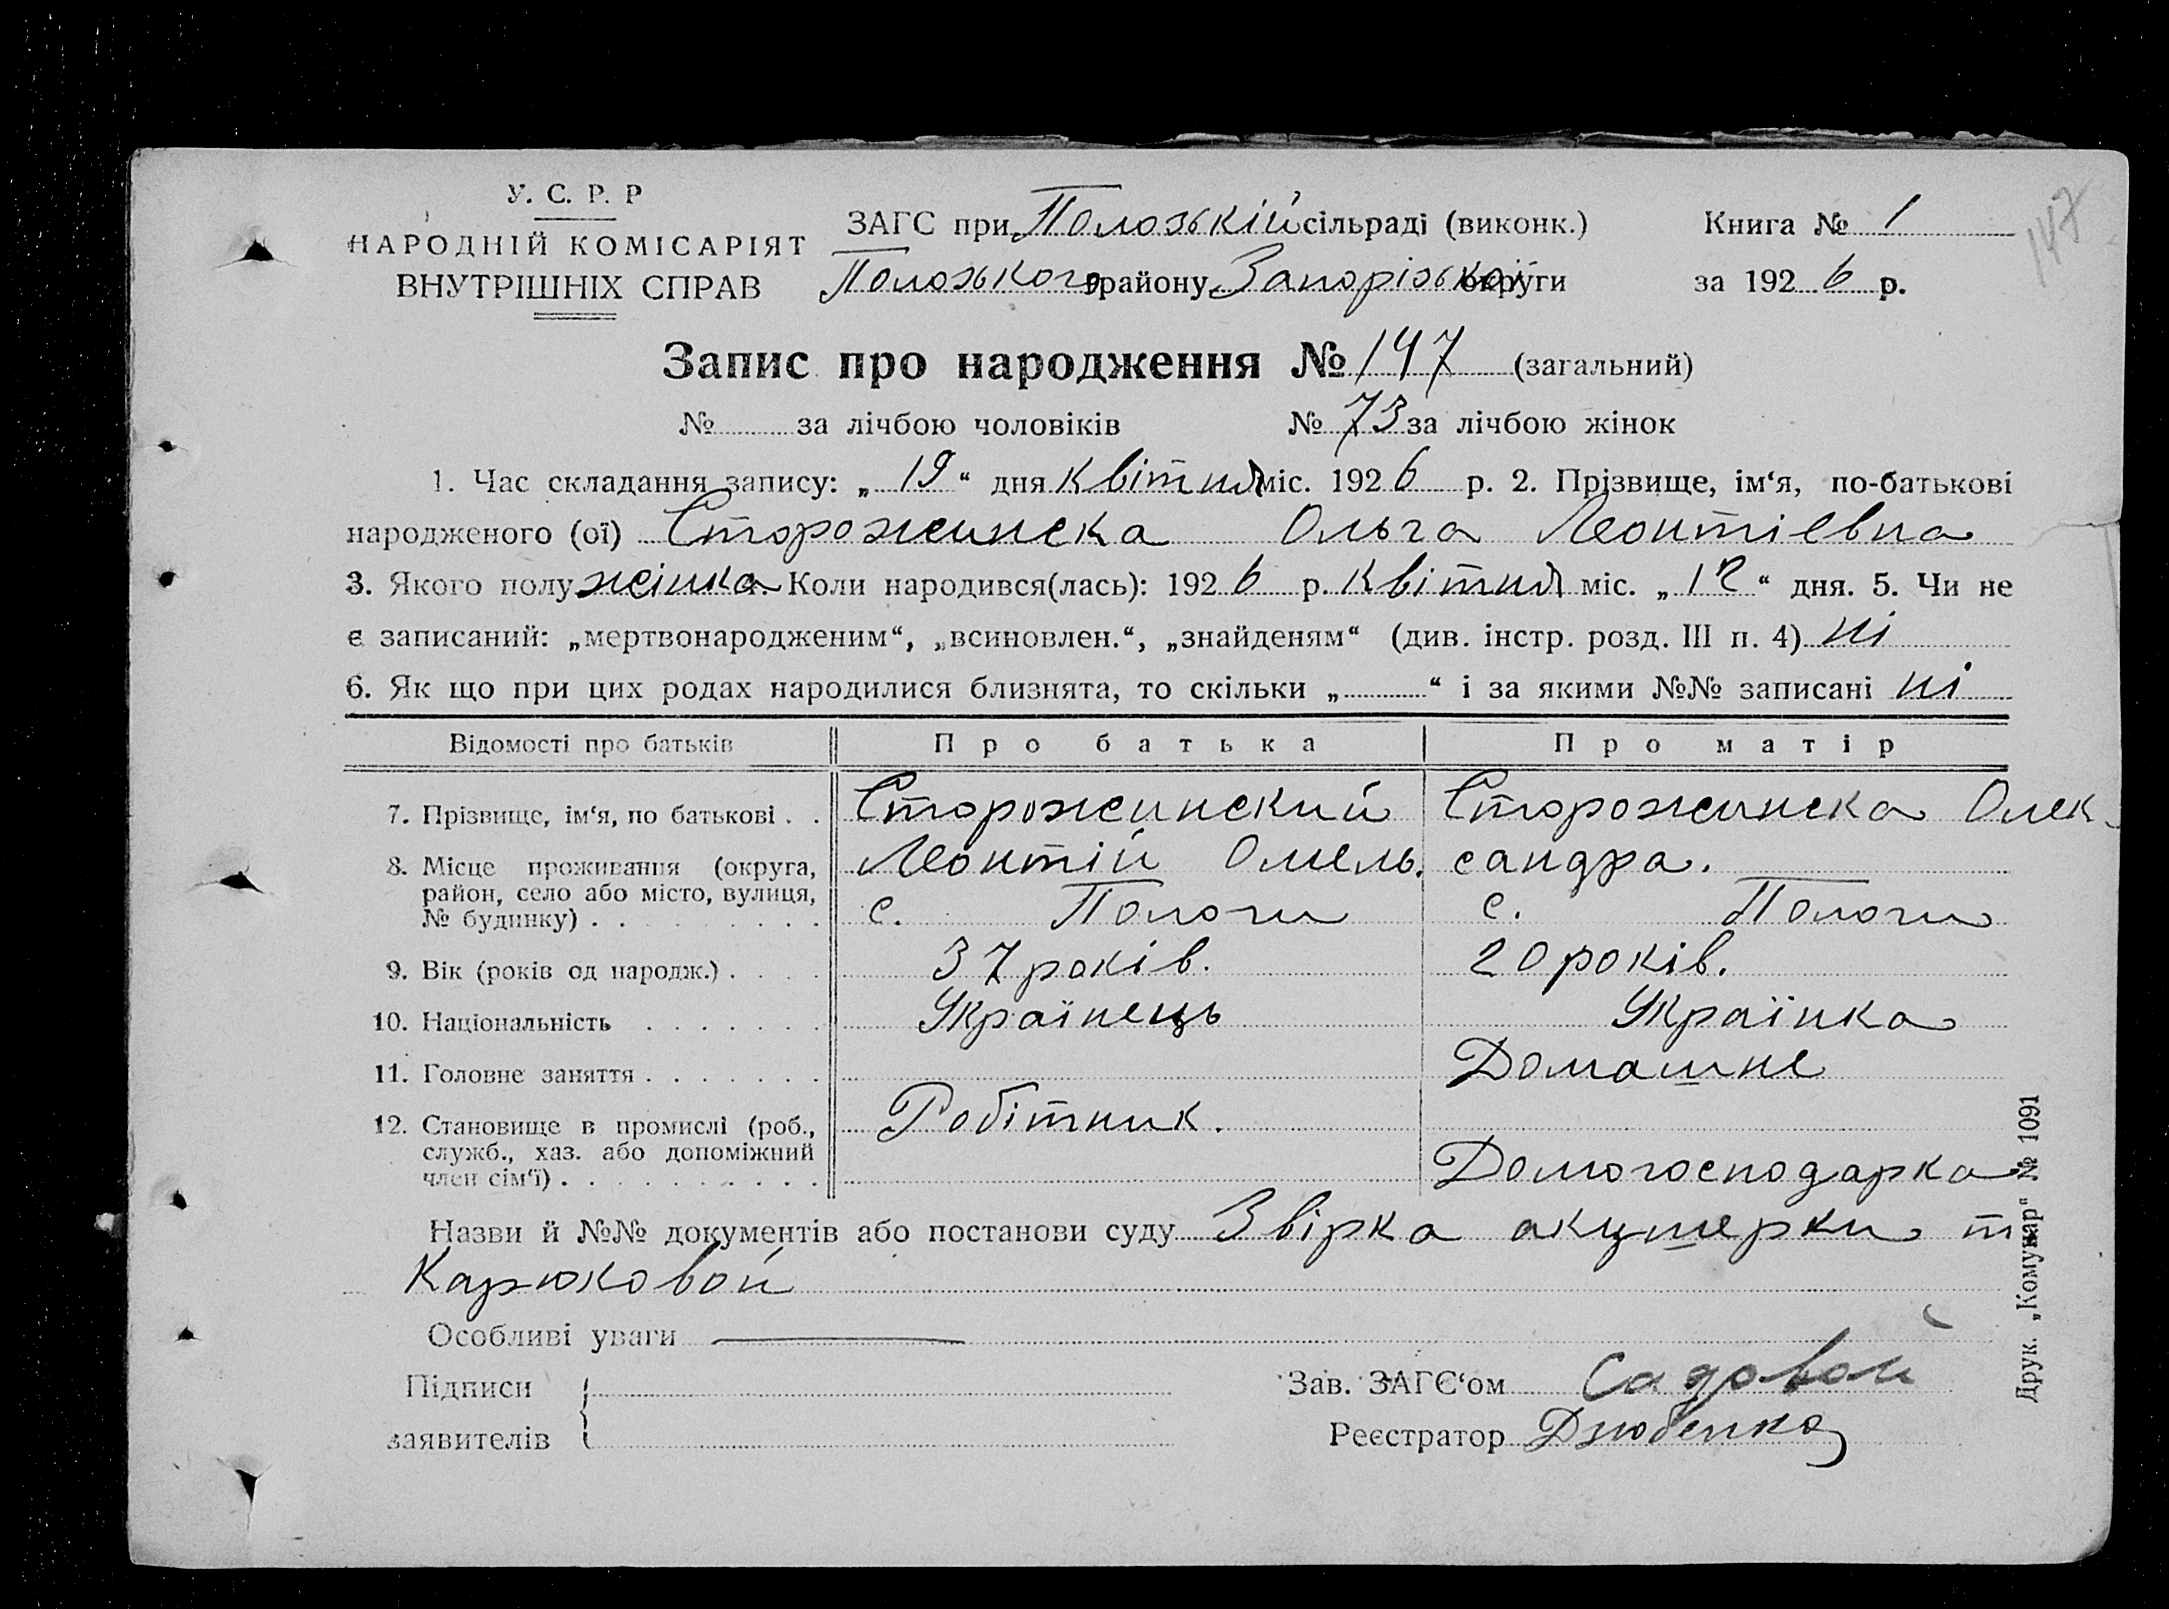 У. С. Р. Р
НАРОДНІЙ КОМІСАРІЯТ
ВНУТРІШНІХ СПРАВ
ЗАГС при Полозькій сільраді (виконк.)
Книга № 1
147
Полозького району Запорізької округи
за 1926 р.
Запис про народження № 147 (загальний)
№ за лічбою чоловіків № 73 за лічбою жінок
1. Час складання запису: „ 19 “ дня Квітня міс. 1926 р. 2. Прізвище, ім‘я, по-батькові
народженого (ої) Сторожинска Ольга Леонтіевна
3. Якого полу жінка. Коли народився(лась): 1926 р. Квітня міс. „ “ дня. 5. Чи не
є записаний: „мертвонародженим“, „всиновлен.“, „знайденям“ (див. інстр. розд. III п. 4) ні
6. Як що при цих родах народилися близнята, то скільки „ “ і за якими №№ записані ні
Відомості про батьків Про батька Про матір
7. Прізвище, ім‘я, по батькові . . Сторожинский Сторожинска Олек-
Леонтій Омель. сандра.
8. Місце проживання (округа,
район, село або місто, вулиця,
№ будинку) . . . . . . . . . с. Пологи с. Пологи
9. Вік (років од народж.) . . . . 37 років. 20 років.
10. Національність . . . . . . . Українець Українка
11. Головне заняття . . . . . . . Домашне
12. Становище в промислі (роб., Робітник.
служб., хаз. або допоміжний
член сім‘ї) . . . . . . . . . . Домогосподарка
Назви й №№ документів або постанови суду Звірка акушерки т
Карюковой
Особливі уваги
Підписи
заявителів
Зав. ЗАГС‘ом Садовой
Реєстратор Дзюбенко
Друк. „Комунар“ № 1091